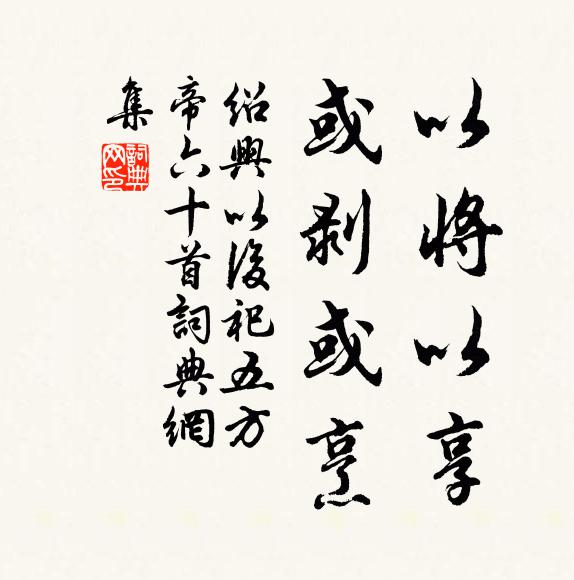 以將以享
或剥或烹
紹興以後祀五方
帝六十首詞典網
集
詞典網印